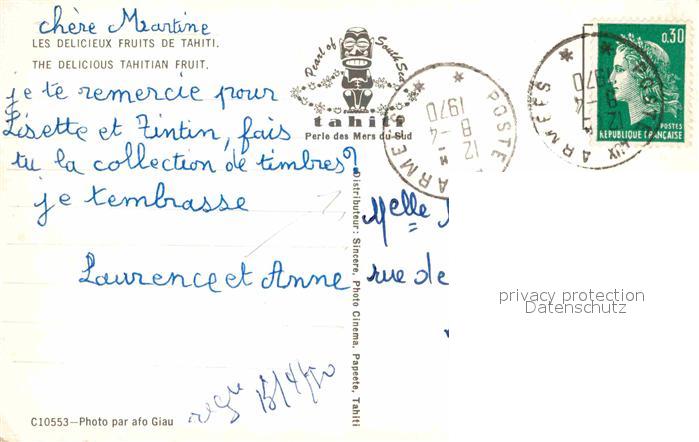 chère Martine
LES DELICIEUX FRUITS DE TAHITI.
THE DELICIOUS TAHITIAN FRUIT.
je te remercie pour
Lisette et Tintin, fais
tu la collection de timbres?
je t'embrasse
Laurence et Anne
reçue 15/4/70
C10553—Photo par afo Giau
Pearl of South Seas
tahiti
Perle des Mers du Sud
Distributeur: Sincere, Photo Cinema. Papeete, Tahiti
POSTE
ARMEES
12 H
8 -4
1970
POSTE AUX ARMÉES
12 H
8 -4
1970
0,30
POSTES
REPUBLIQUE FRANÇAISE
Melle
rue de
privacy protection
Datenschutz